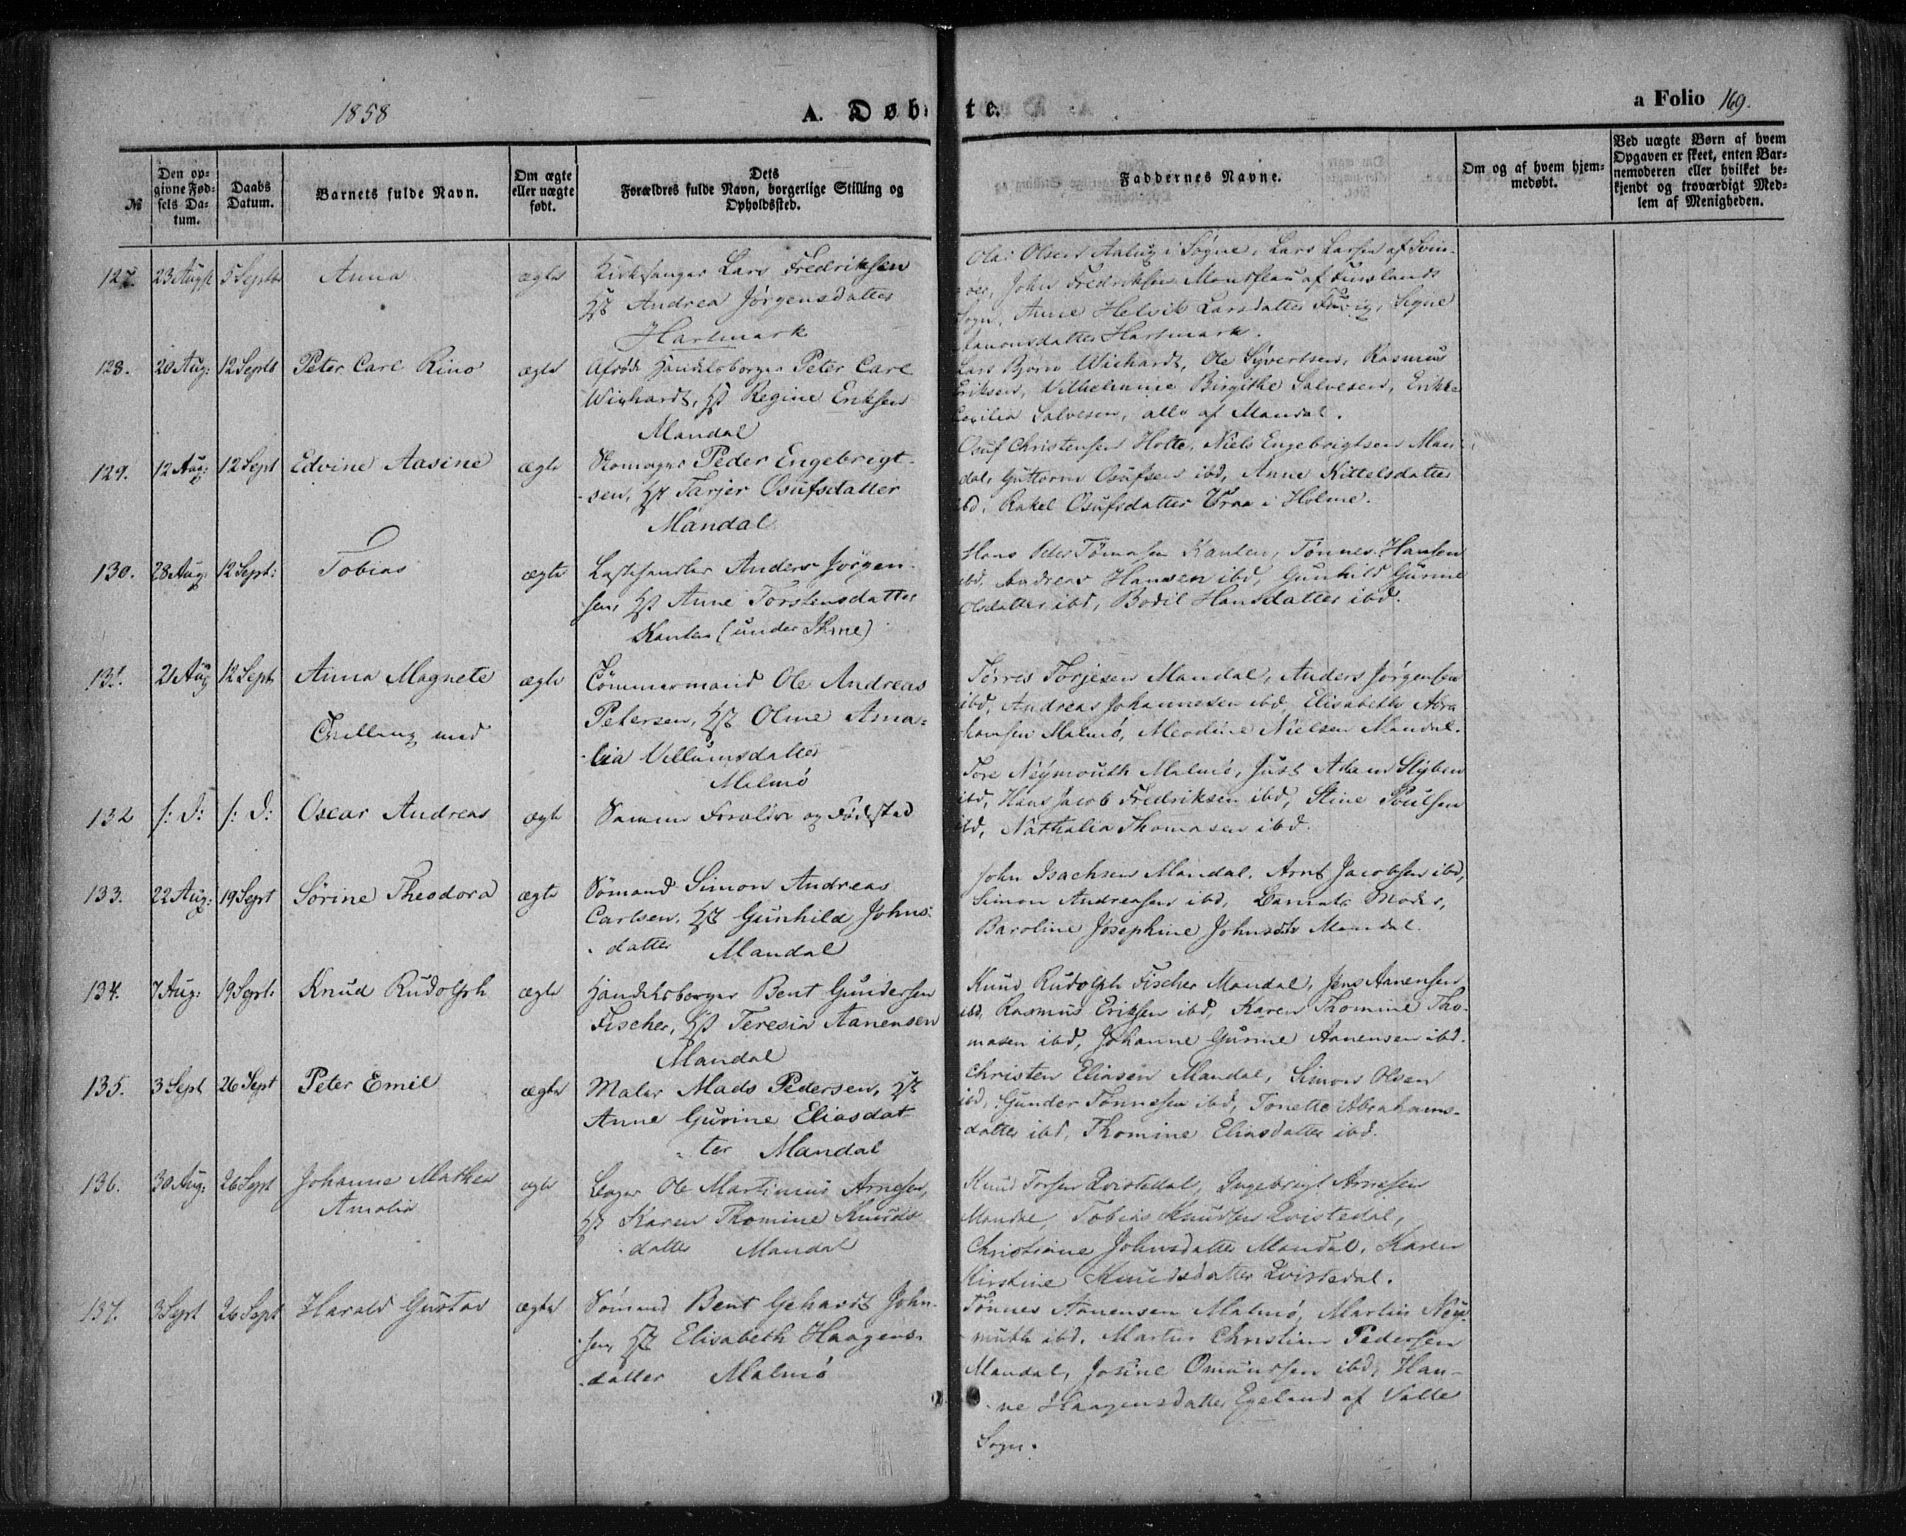 1858
A. Døbte.
a Folio 169.
№
Den op-
givne Fød-
sels Da-
tum.
Daabs
Datum.
Barnets fulde Navn.
Om ægte
eller uægte
født.
Dets
Forældres fulde Navn, borgerlige Stilling og
Opholdssted.
Faddernes Navne.
Om og af hvem hjem-
medøbt.
Ved uægte Børn af hvem
Opgaven er skeet, enten Bar-
nemoderen eller hvilket be-
kjendt og troværdigt Med-
lem af Menigheden.
127. 23 Augst 5 Septb Anna ægte
Kirksanger Lars Fredriksen
Hst Andrea Jørgensdatter
Hartmark
Ola Olsen i Søgne, Lars Larsen af
John Fredriksen af Finslands
Sogn, Anne Larsdatter Signe
Hartmark.
128. 20 Aug: 12 Septb Peter Carl Rino ægte
Afdøde Handelsborger Peter Carl
Wichardt, Hst Regine Eriksen
Mandal
Lars Born Wichardt, Ole Syvertsen, Rasmus
Eriksen, Vilhelmine Birgithe Salvesen, Erikke
Cecilia Salvesen, alle af Mandal.
129. 12 Aug: 12 Sept Edvine Aasine ægte
Skomager Peder Engebrigt-
sen, Hst Tarjer Osufsdatter
Mandal
Osuf Christensen Holte, Niels Engebrigtsen Man-
dal, Guttorm Osufsen ibd, Anne Kittelsdatter
ibd, Rakel Osufsdatter i Holme.
130. 28 Aug: 12 Sept: Tobias ægte
Anders Jørgen-
sen, Hst Anne Torstensdatter
(under Ihme)
Hans Peter Tømasen Tønnes Hansen
ibd, Andreas Hansen ibd, Gunhild Gurine
Olsdatter ibd, Bodil Hansdatter ibd.
131. 21 Aug 12 Sept Anna Magnete ægte
Tvilling med
Tømmermand Ole Andreas
Petersen, Hst Oline Ama-
lia Villumsdatter
Malmø
Tørres Torjesen Mandal, Anders Jørgensen
ibd, Andreas Johannesen ibd, Elisabeth Abra
hamsen Malmø, Nielsen Mandal.
132 /: D: /: D: Oscar Andreas ægte
Samme Forældre og Fødested
Tore Neymouth Malmø, Just Adam
ibd, Hans Jacob Fredriksen ibd, Stine Poulsen
ibd, Nathalia Thomasen ibd.
133. 22 Aug: 19 Sept Sørine Theodora ægte
Sømand Simon Andreas
Carlsen, Hst Gunhild Johns-
datter Mandal
John Isachsen Mandal. Arnt Jacobsen ibd,
Simon Andreasen ibd, Barnets Moder,
Baroline Josephine Johnsdtr Mandal.
134. 7 Aug: 19 Sept: Knud Rudolph ægte
Handelsborger Bent Gundersen
Fischer, Hst Teresia Aanensen
Mandal
Knud Rudolph Fischer Mandal, Jens Aanensen
ibd, Rasmus Eriksen ibd, Karen Thomine Tho-
masen ibd, Johanne Gurine Aanensen ibd.
135. 3 Sept 26 Sept Peter Emil ægte
Maler Mads Pedersen, Hst
Anne Gurine Eliasdat-
ter Mandal
Christen Eliasen Mandal, Simon Olsen
ibd, Gunder Tønnesen ibd, Tonette Abrahams-
datter ibd, Thomine Eliasdatter ibd.
136. 30 Aug: 26 Sept Johanne Mathea ægte
Amalia
Ole Martinius Arnesen,
Hst Karen Thomine Knuds
datter Mandal
Knud Torsen Qvistedal, Ingebrigt Arnesen
Mandal, Tobias Knudsen Qvistedal,
Christiane Johnsdatter Mandal, Karen
Kirstine Knudsdatter Qvistedal.
137. 3 Sept 26 Sept Harald Gustav ægte
Sømand Bent Gehardt John-
sen, Hst Elisabeth Haagens-
datter Malmø
Tønnes Aanensen Malmø, Martin Ney-
muth ibd, Martin Christian Pedersen
Mandal, Josine Omundsen ibd, Han-
ne Haagensdatter Egeland af Valle
Sogn.